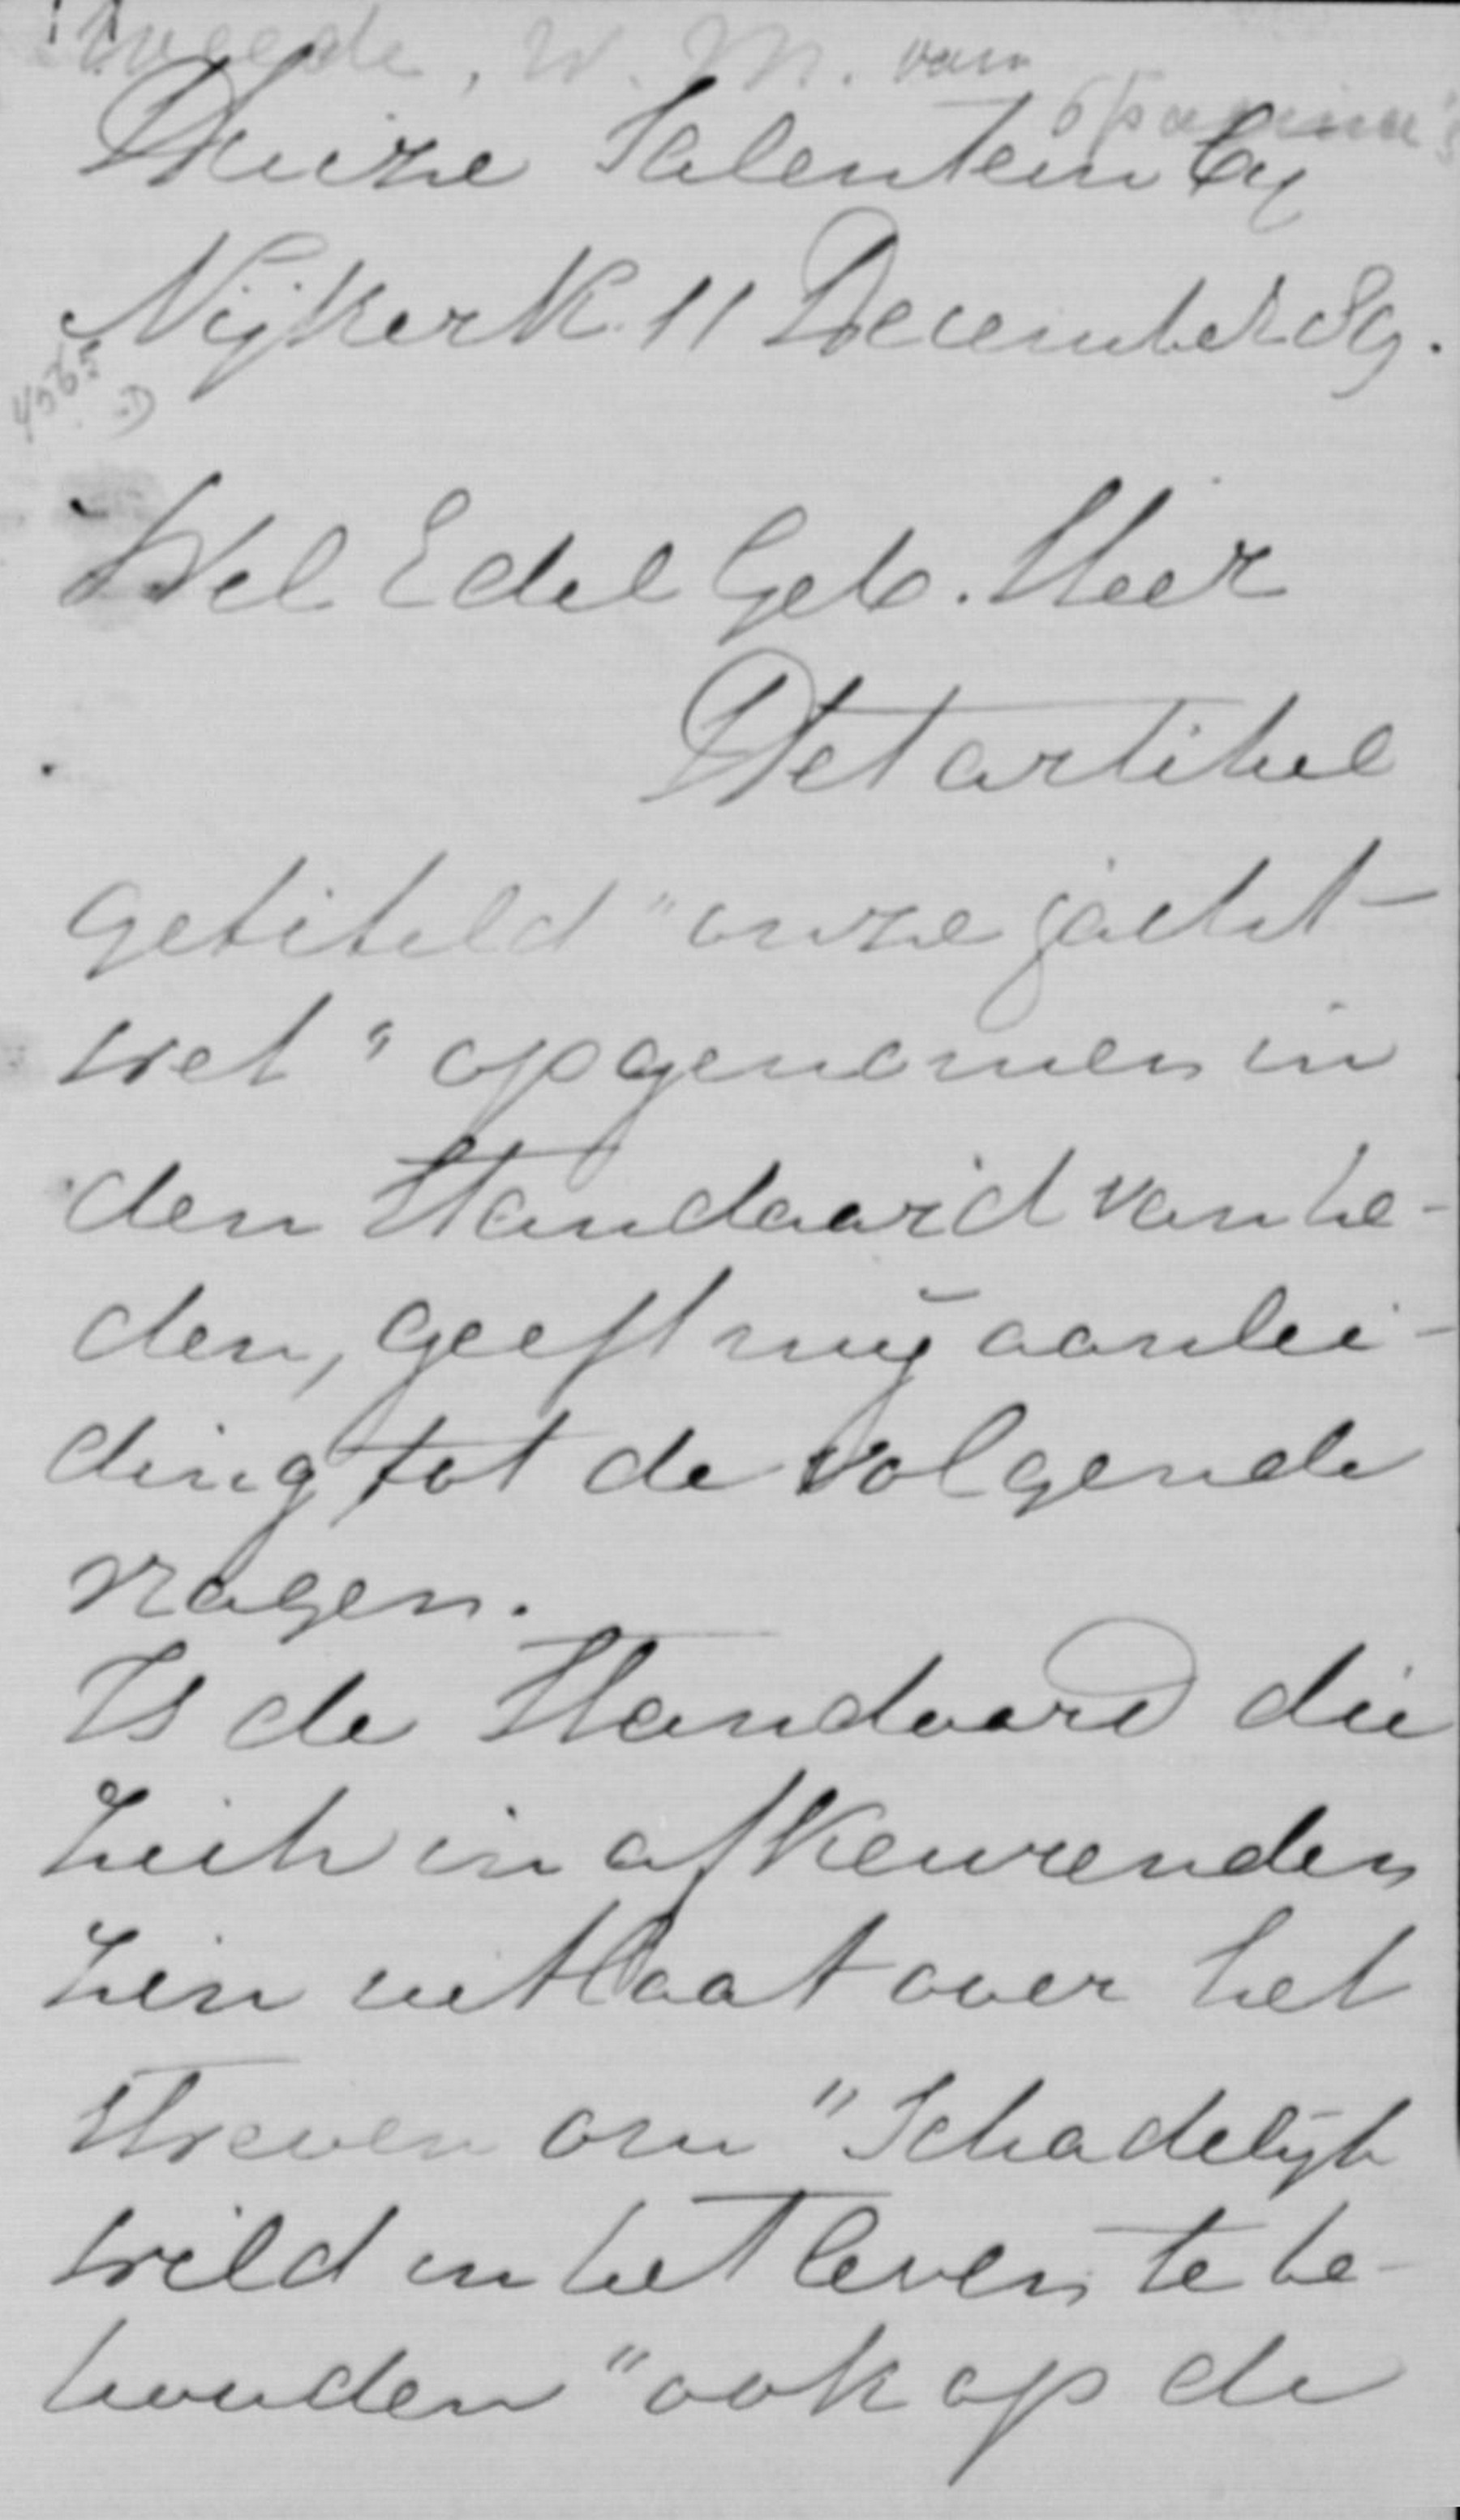 W. M. van
Huize Salentein by
Nijkerk 11 December 89.
4565
Wel Edel Geb. Heer
Het artikel
getiteld "onze jacht-
wet" opgenomen in
den Standaard van he-
den, geeft mij aanlei-
ding tot de volgende
vragen.
Is de Standaard die
zich in afkeurenden
zin uitlaat over het
streven om "Schadelijk
wild in het leven te be-
houden" ook op de